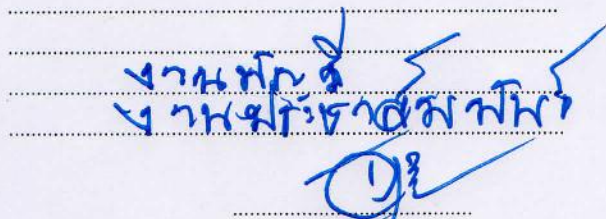 งานพิธี
งานประชาสัมพันธ์